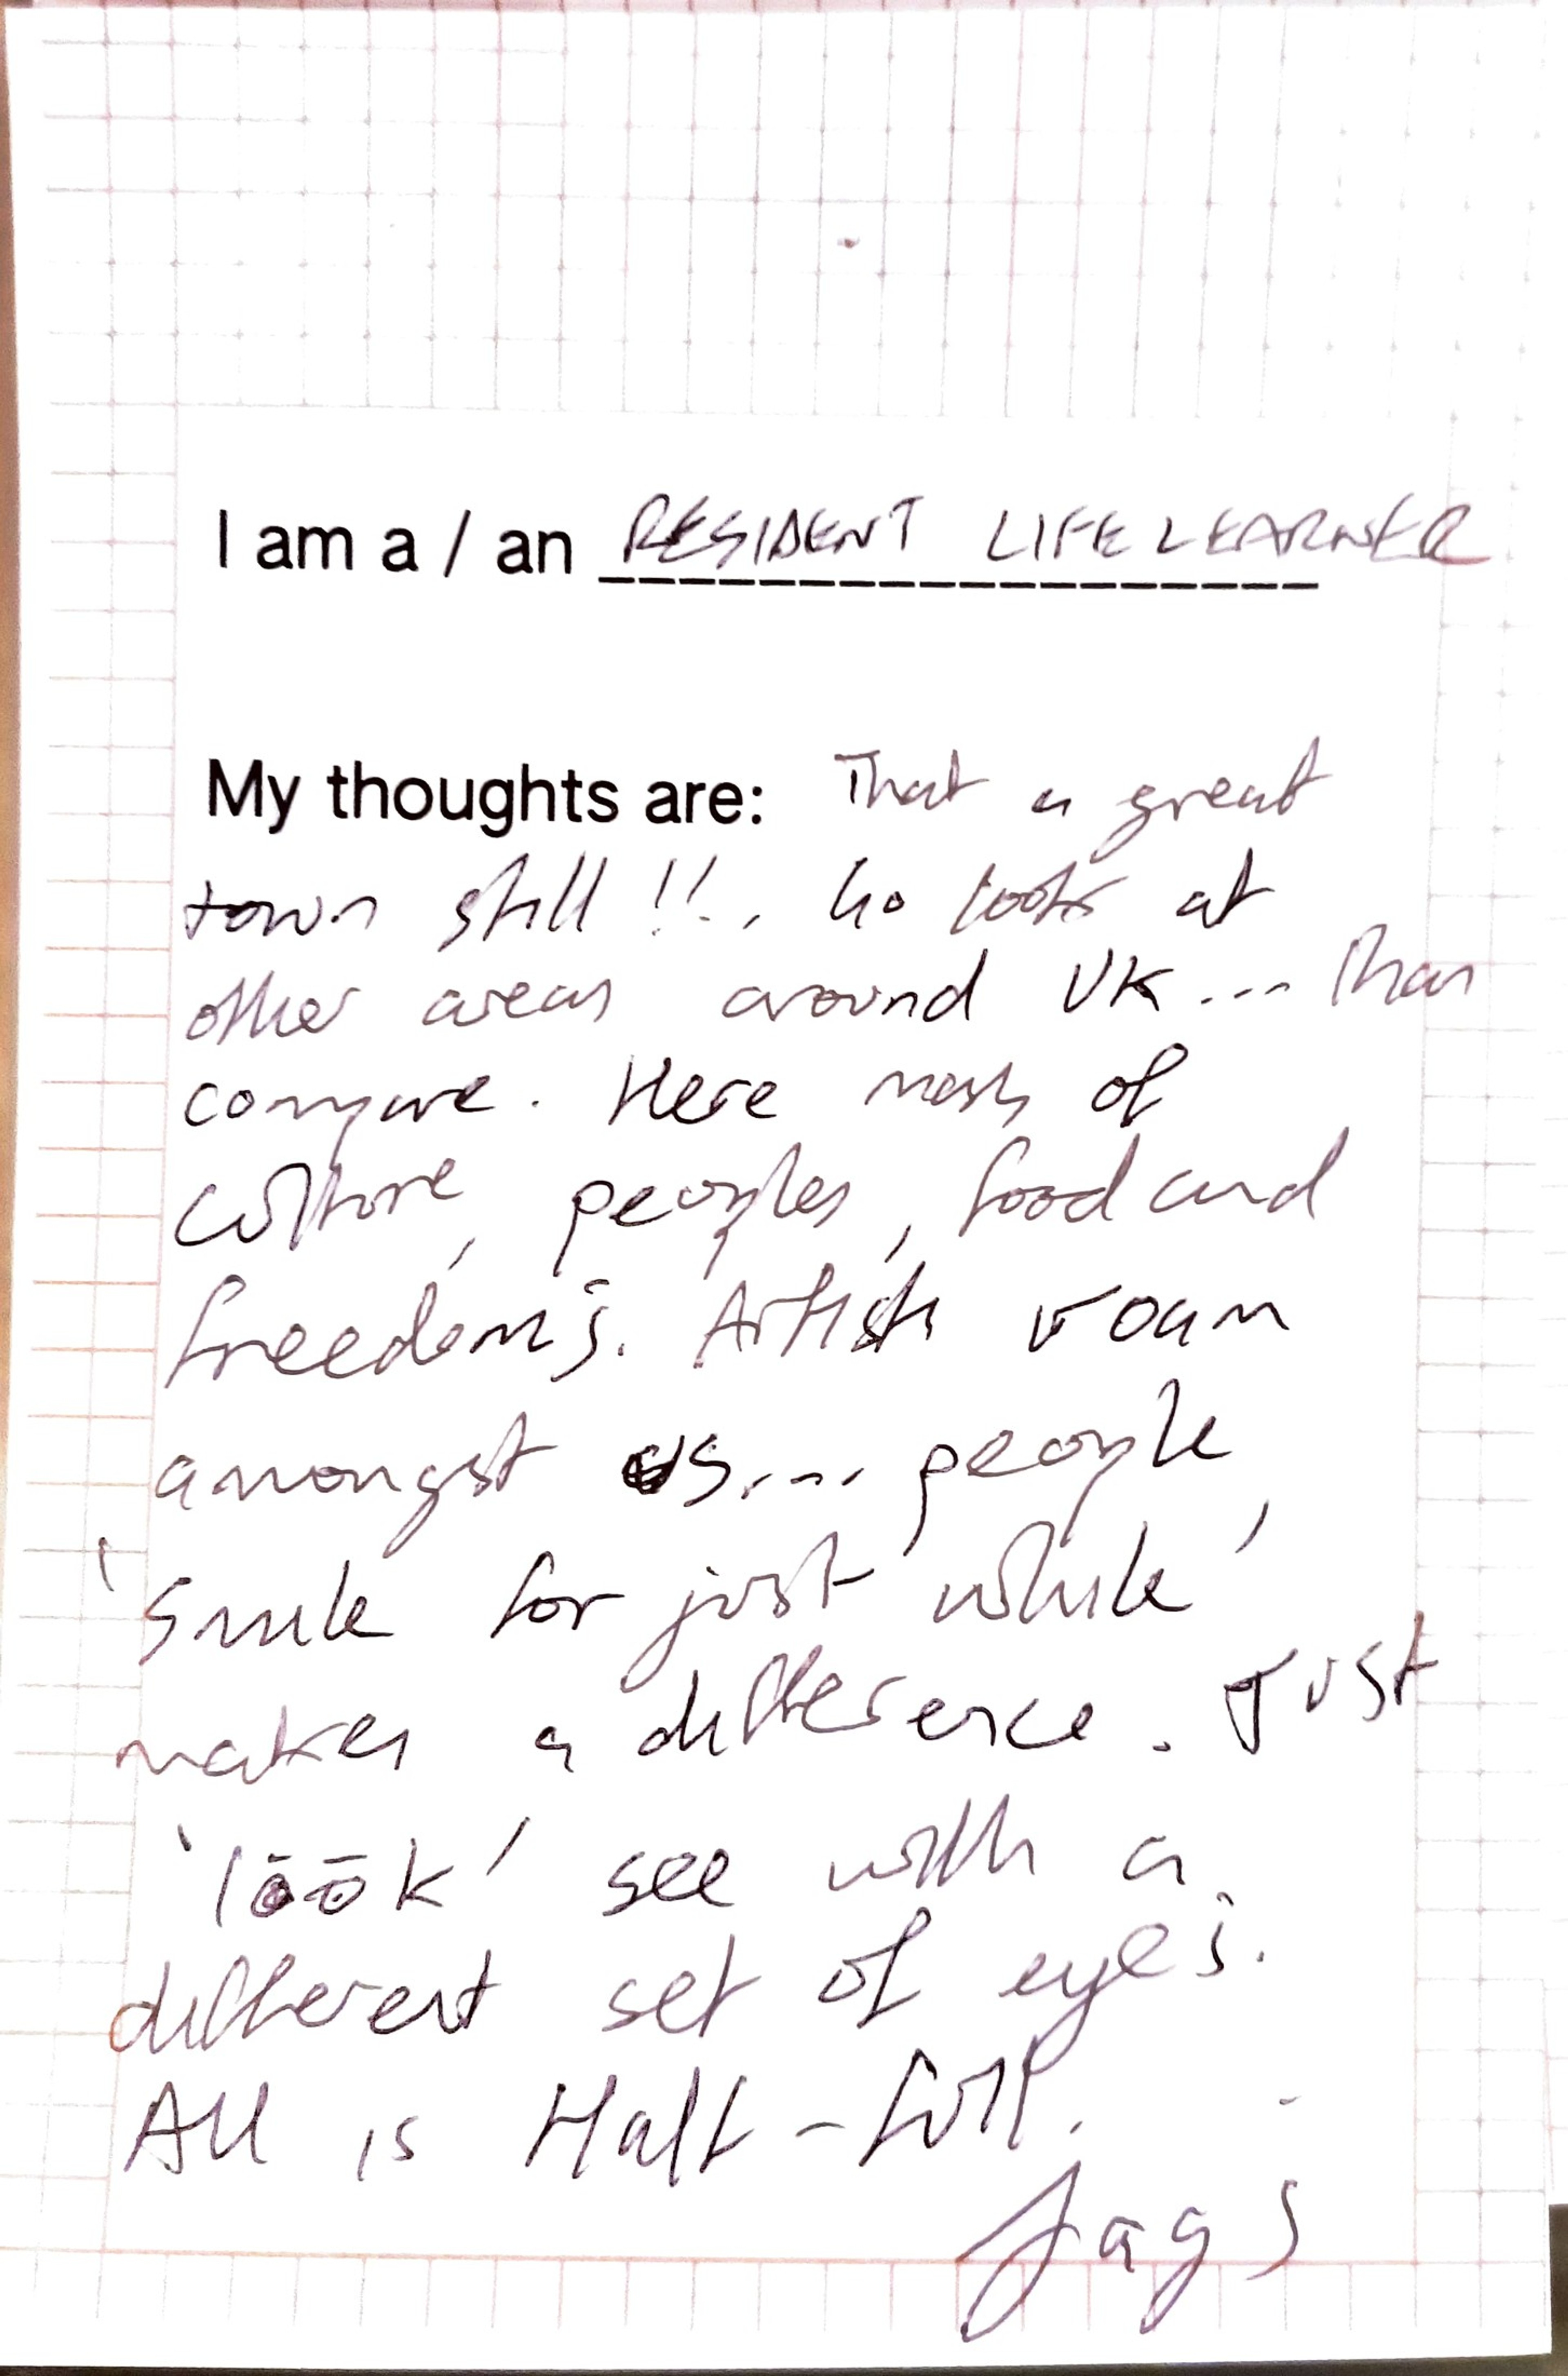 I am a / an RESIDENT LIFE LEARNER
My thoughts are: That a great
town still!!. Go look at
other areas around UK... than
compare. Here mash of
culture, peoples, food and
freedoms. Artists roam
amongst us.... people
'Smile for just while'
makes a difference. Just
'lōōk' see with a
different set of eyes.
All is Half-full.
Jags